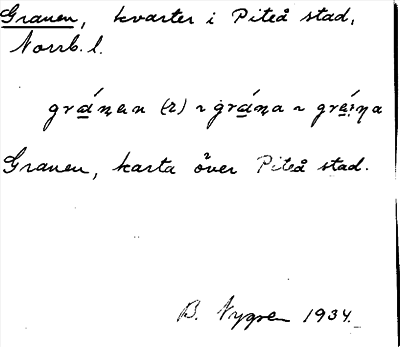 Granen, kvarter i Piteå stad,
Norrb. l.
gránan (2) ~ grána ~ grána
Granen, karta över Piteå stad.
B. Nygren 1934.